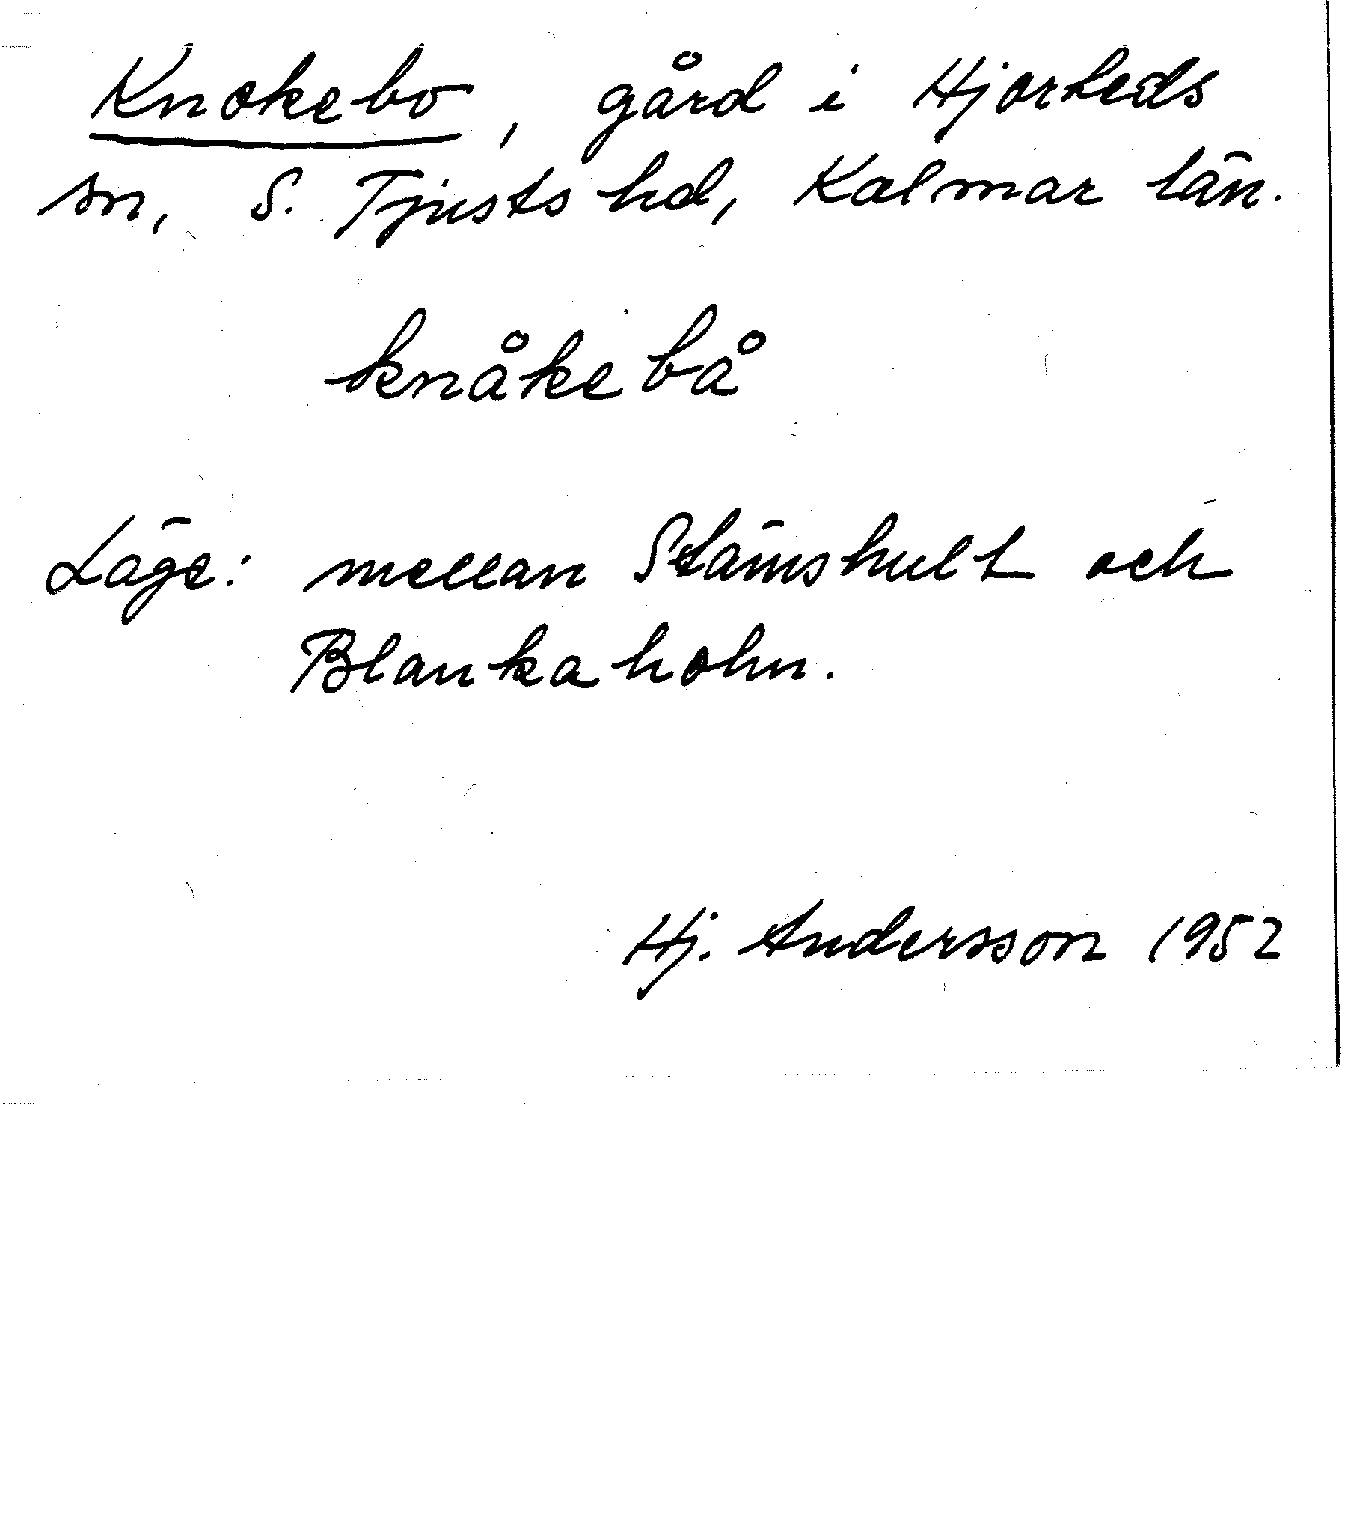 Knokebo, gård i Hjorteds
sn, S. Tjusts hd, Kalmar län.
knåkebå
Läge: mellan Stämshult och
Blankaholm.
Hj. Andersson 1952